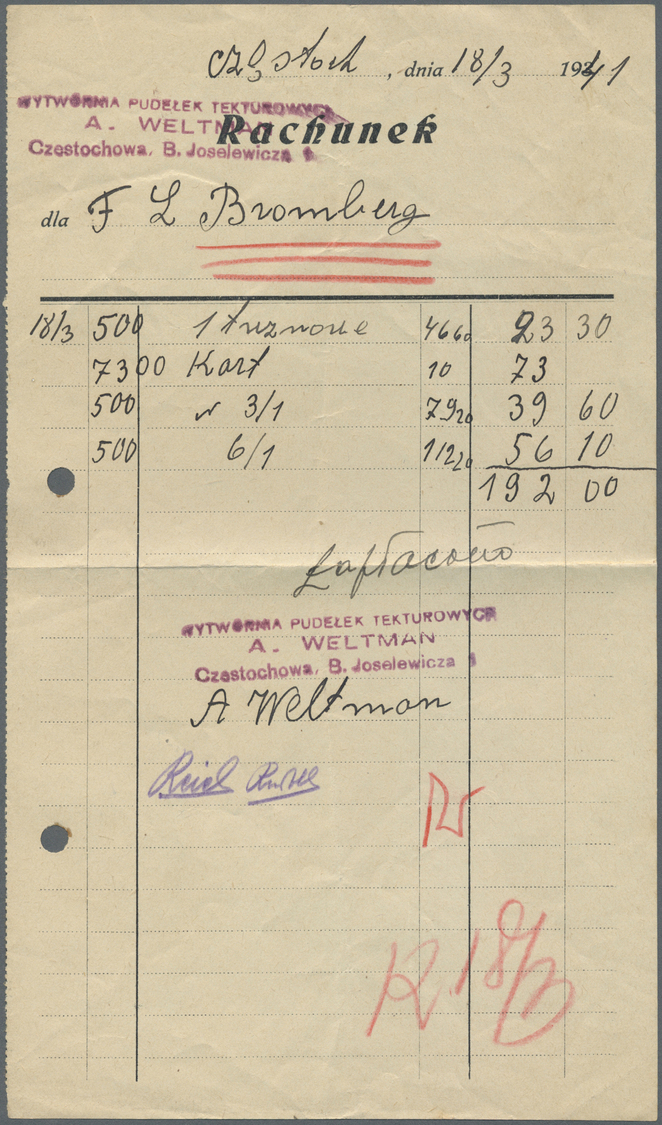 Częstoch, dnia 18/3 1941
WYTWÓRNIA PUDEŁEK TEKTUROWYCH
A. WELTMAN
Częstochowa, B. Joselewicza 1
Rachunek
dla F L Bromberg
18/3 500 1 tuznowe 46 60 23 30
7300 Kart 10 73
500 " 3/1 79 20 39 60
500 6/1 112 20 56 10
192 00
Zapłacono
WYTWÓRNIA PUDEŁEK TEKTUROWYCH
A. WELTMAN
Częstochowa, B. Joselewicza 1
A Weltman
K. 18/3